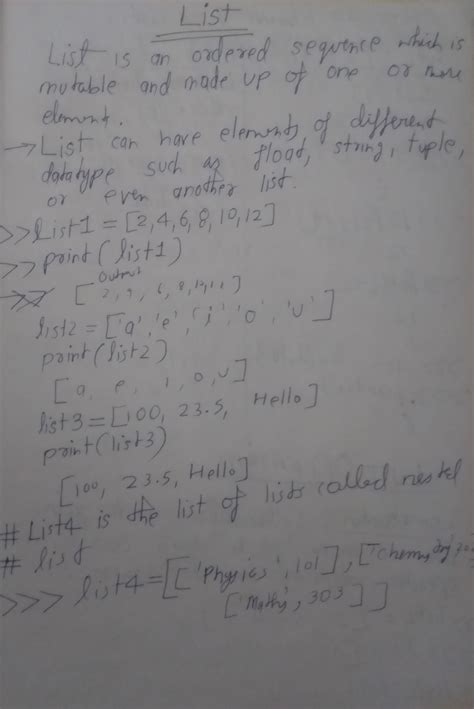 List
List is an ordered sequence which is
mutable and made up of one or more
elements.
→ List can have elements of different
datatype such as float, string, tuple,
or even another list.
>> list1 = [2,4,6,8,10,12]
>> print(list1)
Output
list2 = ['a','e','i','o','u']
print(list2)
[a, e, i, o, u]
list3 = [100, 23.5, Hello]
print(list3)
[100, 23.5, Hello]
# List4 is the list of lists called nested
# list
>>> list4 = [['Physics',101],
['Maths', 303]]